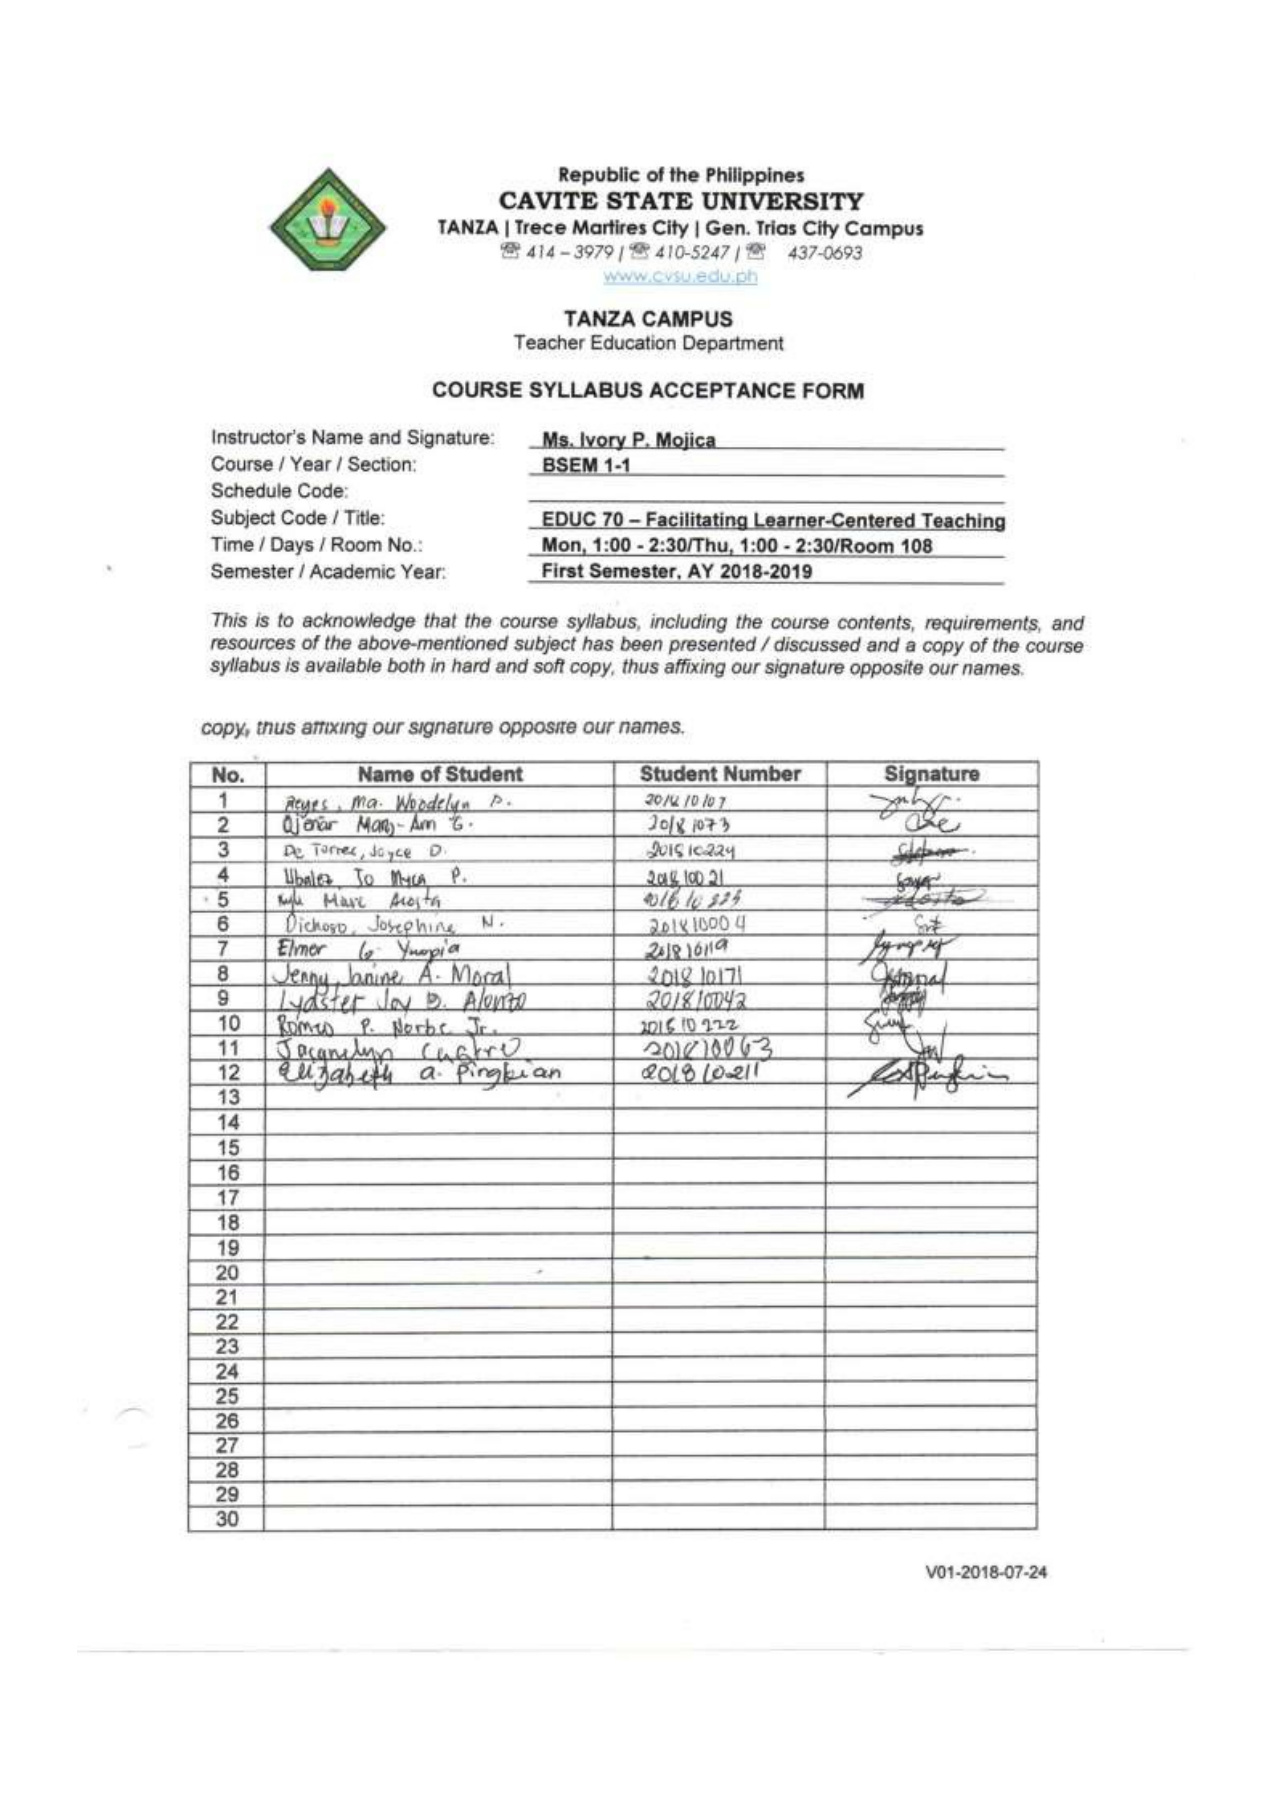 Republic of the Philippines
CAVITE STATE UNIVERSITY
TANZA | Trece Martires City | Gen. Trias City Campus
☏ 414 – 3979 / ☏ 410-5247 / ☏ 437-0693
www.cvsu.edu.ph
TANZA CAMPUS
Teacher Education Department
COURSE SYLLABUS ACCEPTANCE FORM
Instructor's Name and Signature: Ms. Ivory P. Mojica
Course / Year / Section: BSEM 1-1
Schedule Code:
Subject Code / Title: EDUC 70 – Facilitating Learner-Centered Teaching
Time / Days / Room No.: Mon, 1:00 - 2:30/Thu, 1:00 - 2:30/Room 108
Semester / Academic Year: First Semester, AY 2018-2019
This is to acknowledge that the course syllabus, including the course contents, requirements, and
resources of the above-mentioned subject has been presented / discussed and a copy of the course
syllabus is available both in hard and soft copy, thus affixing our signature opposite our names.
copy, thus affixing our signature opposite our names.
No. Name of Student Student Number Signature
1 Reyes, Ma. Woodelyn P.
2 Mary-Ann
3 De Torres, Joyce D. 201810224
4 Jo Myca P. 201810021
5 Kyle Marc Acosta
6 Dichoso, Josephine N. 201810004
7 Elmer G. Ynopia 201810119
8 Jenny Janine A. Moral 201810171
9 Lydster Joy B. Alonzo 201810042
10 Romeo P. Norbe Jr. 201810222
11 Jacquelyn Castro 201810063
12 Elizabeth a. Pingkian 201810211
13
14
15
16
17
18
19
20
21
22
23
24
25
26
27
28
29
30
V01-2018-07-24